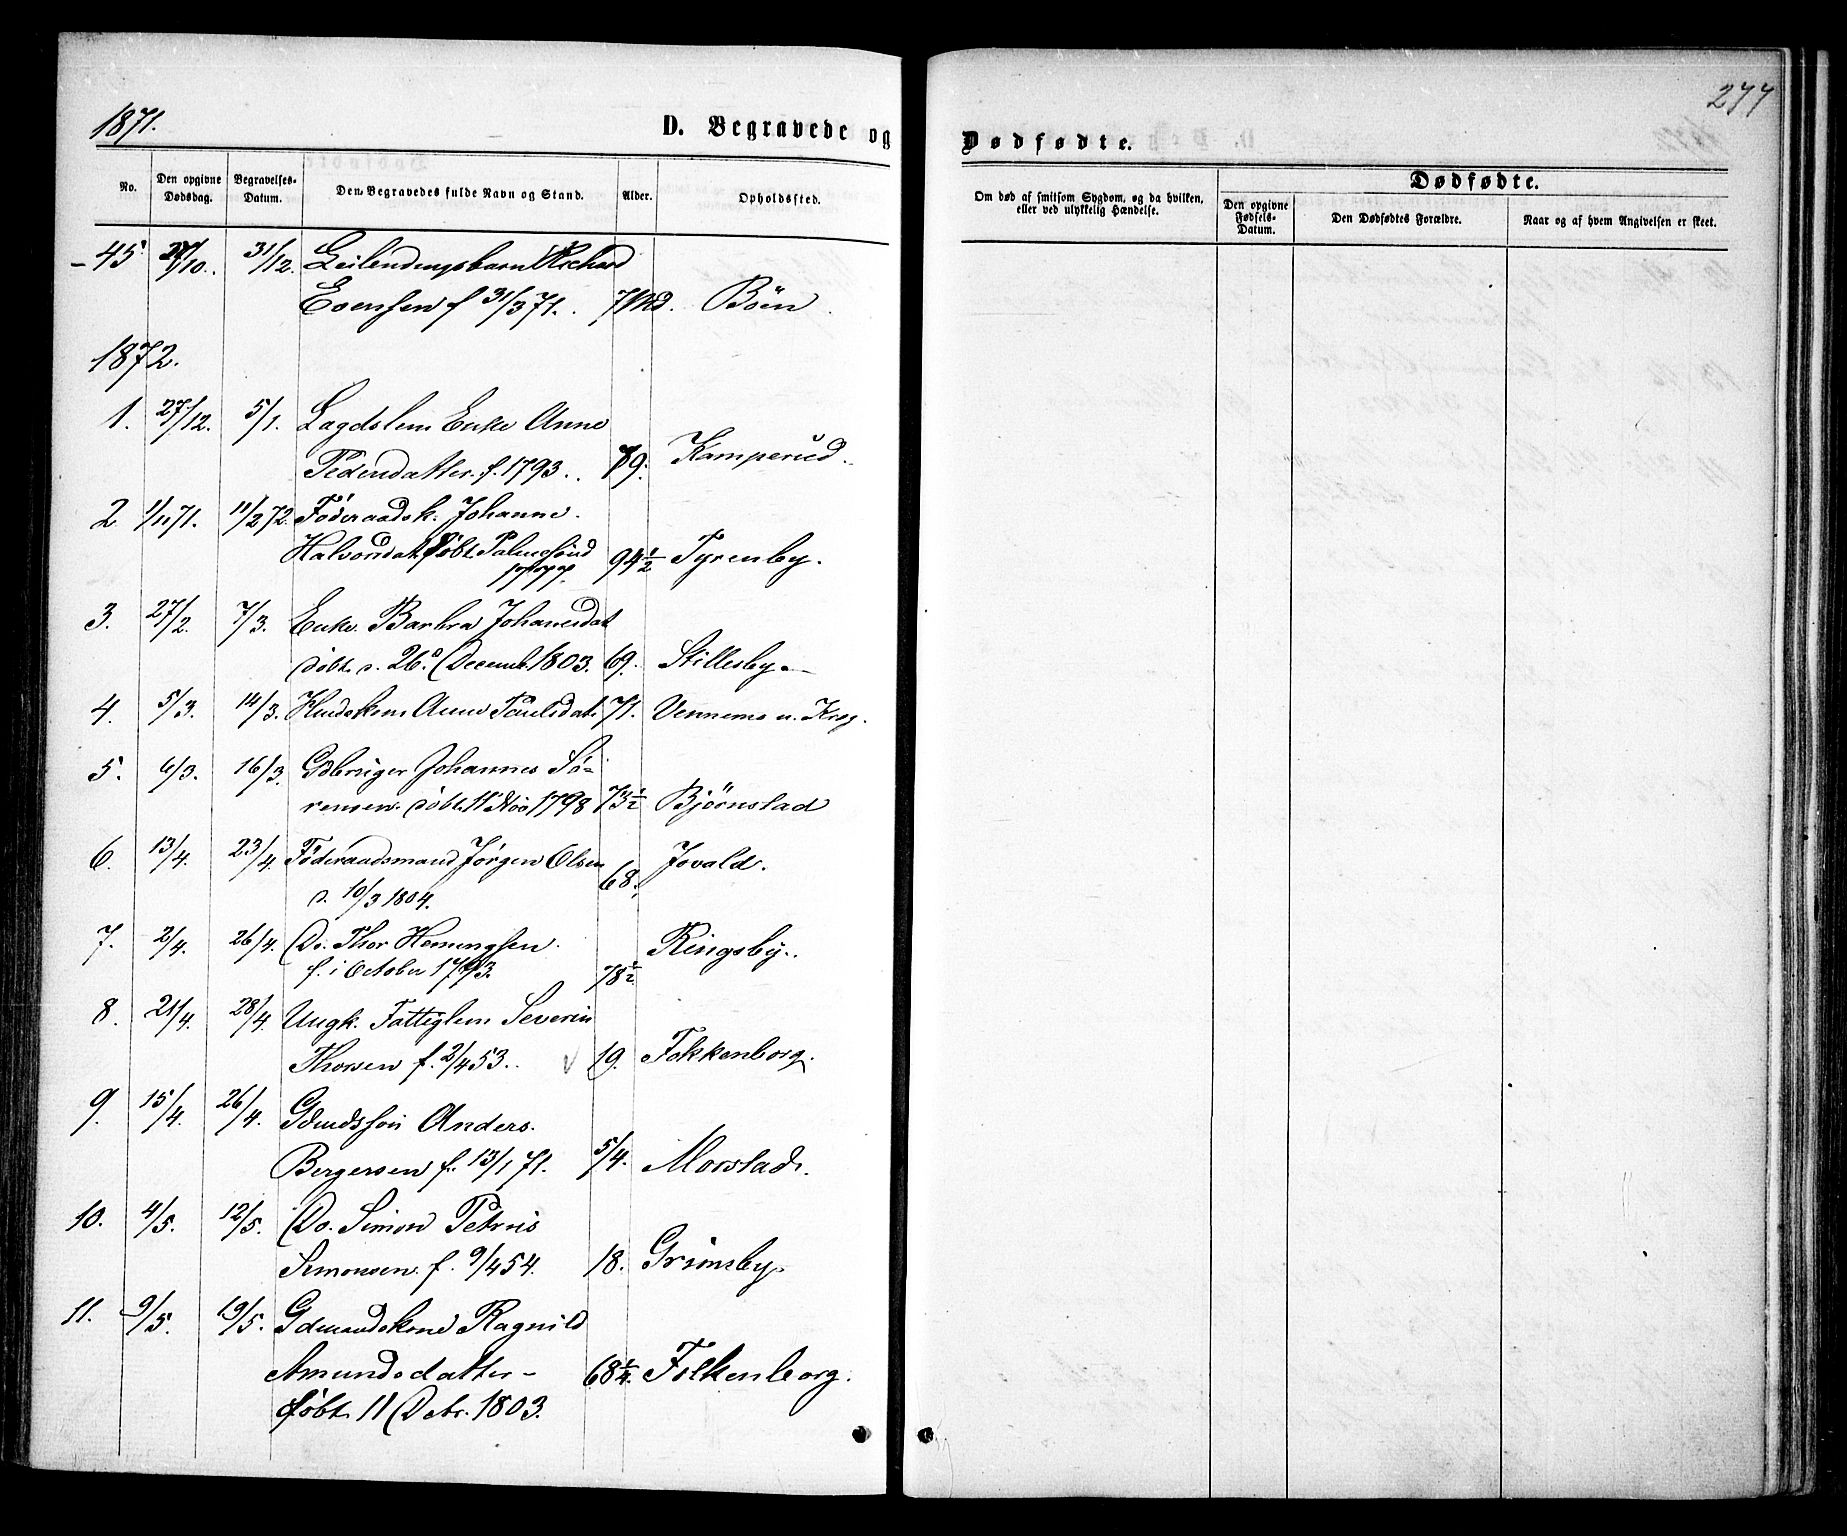 277
1871.
D. Begravede og
Dødfødte.
No.
Den opgivne Dødsdag.
Begravelses-Datum.
Den Begravedes fulde Navn og Stand.
Alder.
Opholdssted.
Om død af smitsom Sygdom, og da hvilken,
eller ved ulykkelig Hændelse.
Dødfødte.
Den opgivne Fødsels-Datum.
Den Dødfødtes Forældre.
Naar og af hvem Angivelsen er skeet.
45 /10. 31/12. Leilendingsbarn Richard
Evensen f 31/3 71. 7 Md. Böen
1872.
1. 27/12. 5/1. Lægdslem Enke Anne
Pedersdatter f. 1793. 79. Kamperud.
2 1/11 71. 11/2 72. Föderaadsk. Johanne
Halvorsdat. döbt Palmesönd
1777. 94 1/2 Tyrenby.
3. 27/2. 7/3. Enke Barbra Johanesdat
döbt d. 26. Decemb. 1803. 69. Stillesby
4. 5/3. 14/3. Anne Paulsdat. 71. Vennemo u. Krog.
5. 6/3. 16/3. Gdbruger Johannes Sö-
rensen. döbt 11 Nov 1798 73 1/2 Bjöörnstad
6. 13/4. 23/4. Föderaadsmand Jörgen Olsen
d. 10/3 1804. 68. Jovald.
7. 2/4. 26/4. Do. Thor Hemingsen
f. i October 1793. 78 1/2 Ringsby.
8. 21/4. 28/4. Ungk. Fattiglem Severin
Thorsen f. 2/4 53. 19. Folkenborg.
9. 15/4. 26/4. Gdmdssön Anders
Bergersen f. 13/1 71. 5/4. Morstad.
10. 4/5. 12/5. Do. Simon Petrus
Simonsen f. 9/4 54. 18. Grimsby
11. 9/5. 19/5. Gdmandskone Ragnild
Amundsdatter -
döbt 11 Debr. 1803. 68 1/4. Folkenborg.